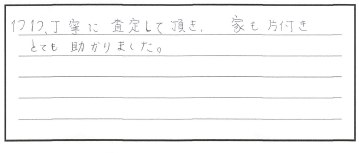 1つ1つ、丁寧に 査定して頂き、 家も片付き
とても 助かりました。